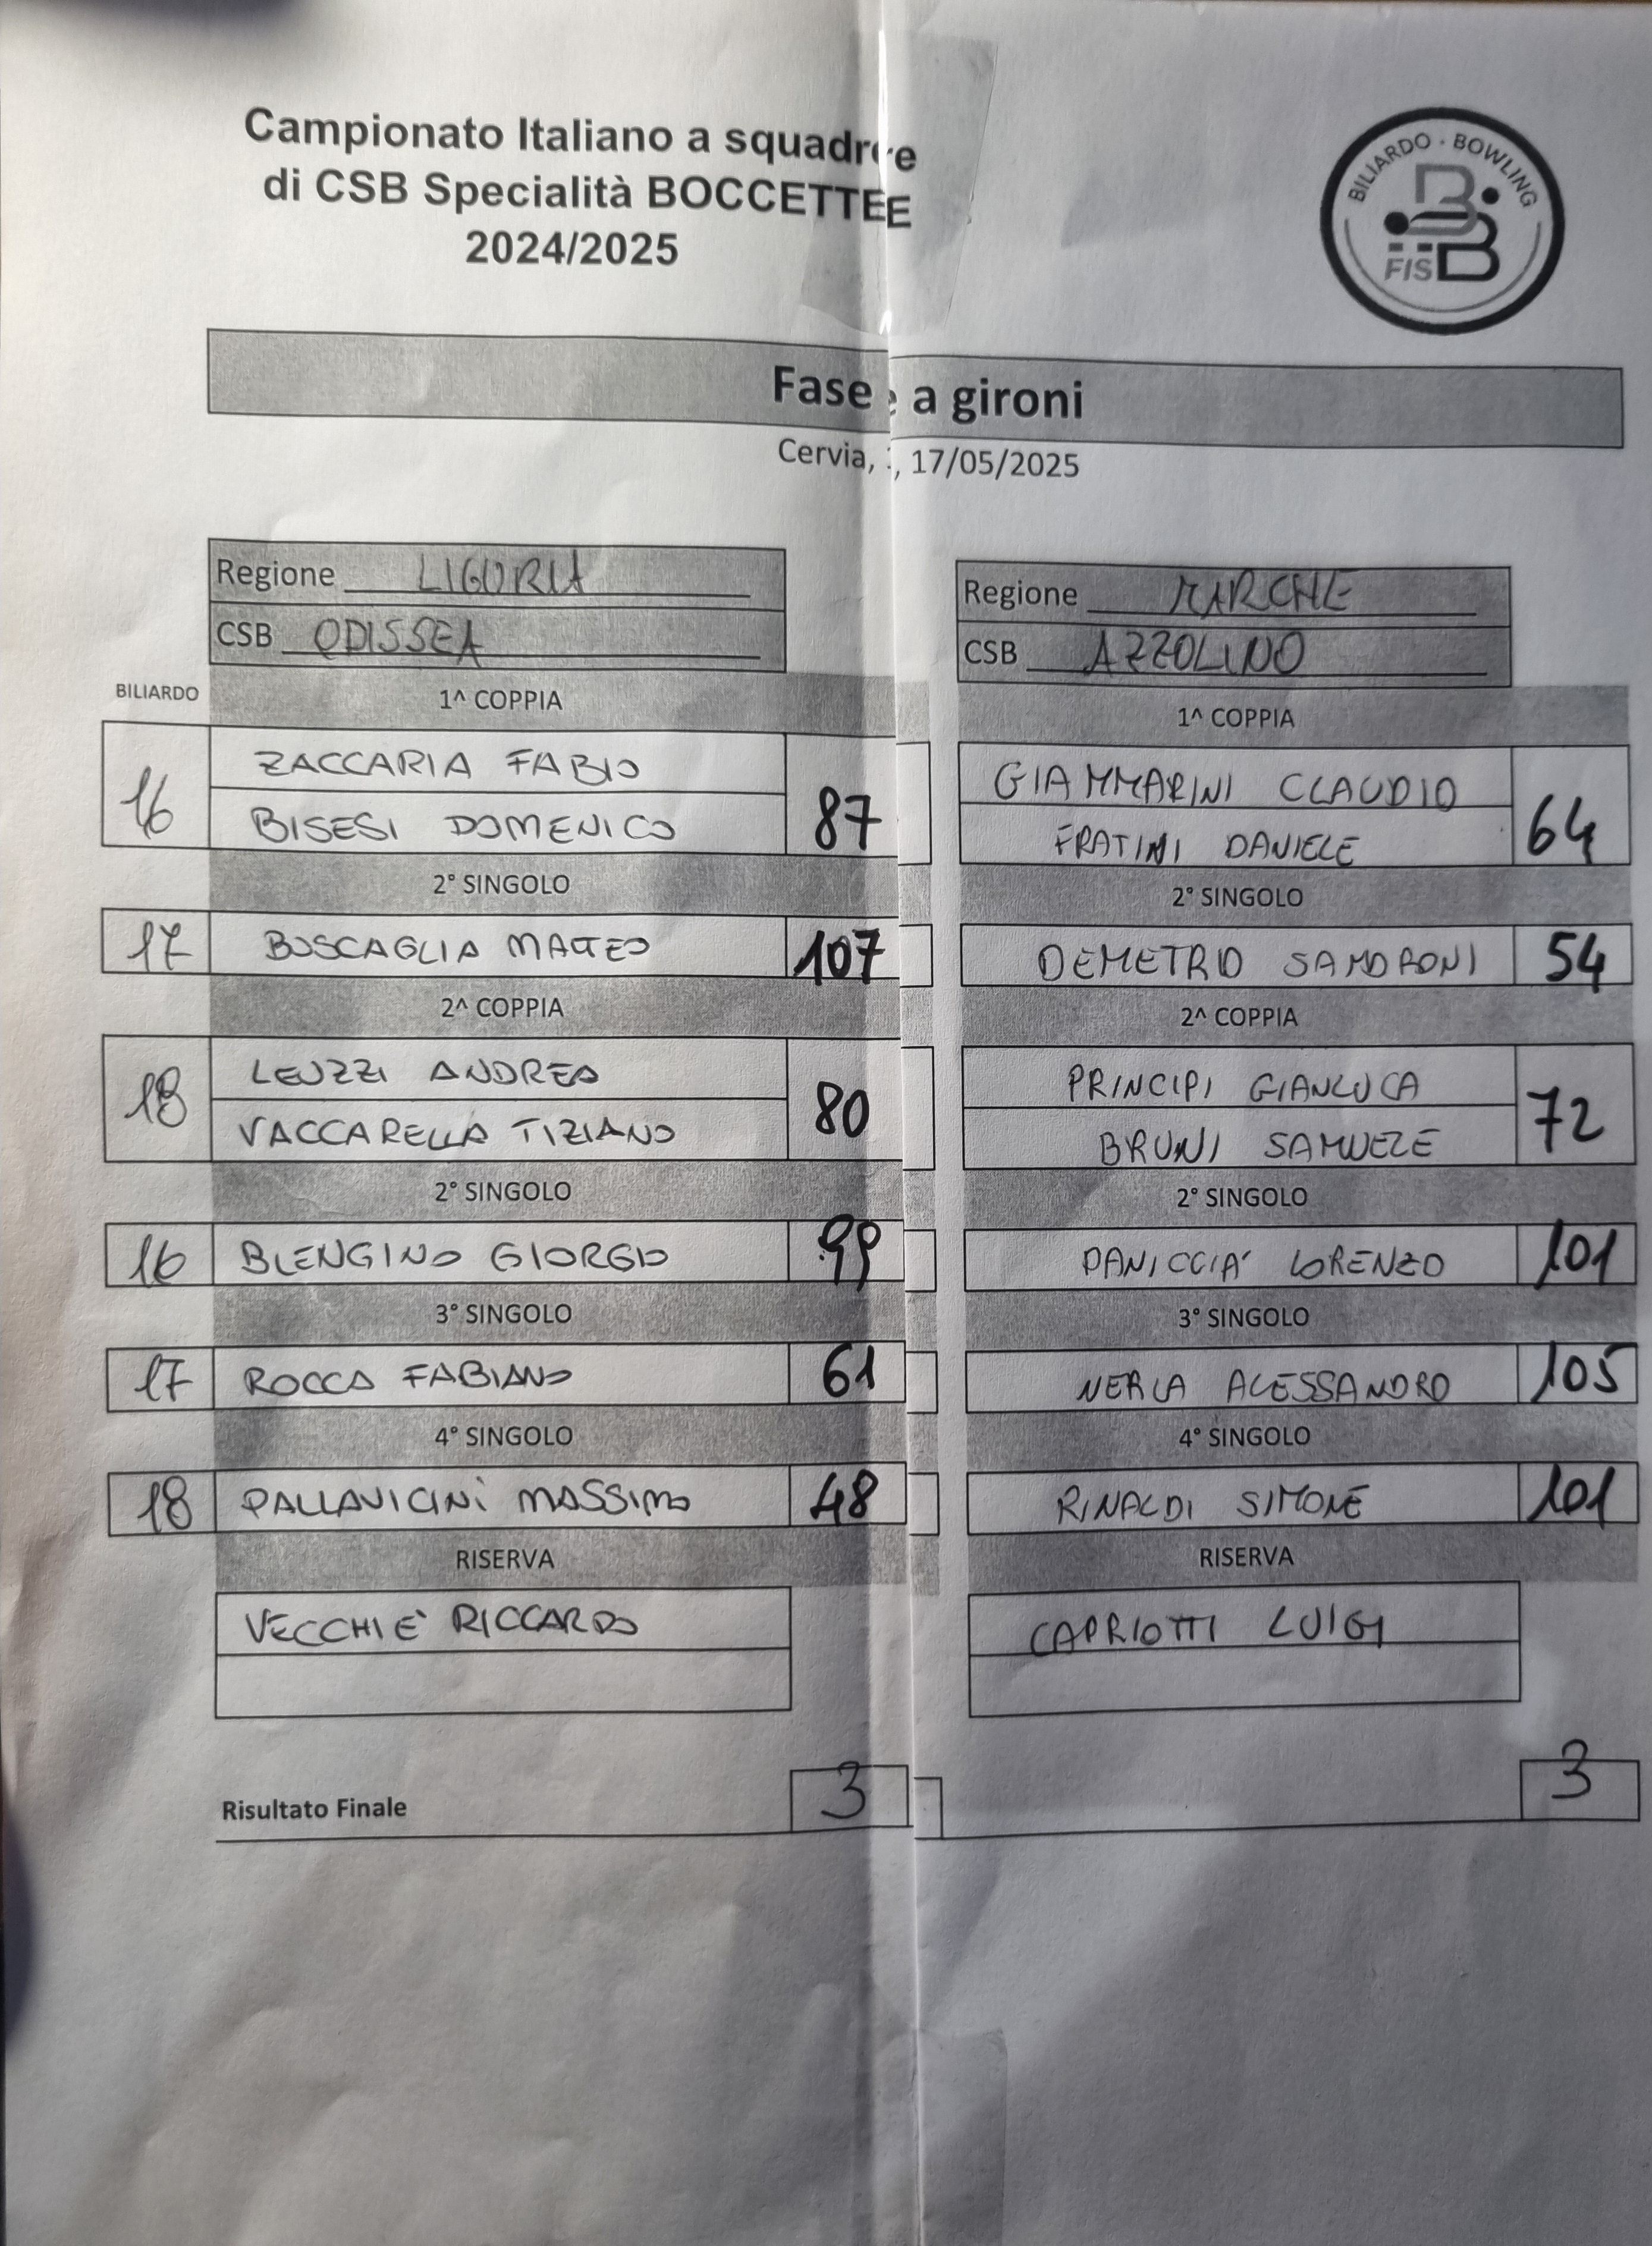 Campionato Italiano a squadre
di CSB Specialità BOCCETTE
2024/2025
BILIARDO · BOWLING
FISBB
Fase a gironi
Cervia, 17/05/2025
Regione LIGURIA
CSB ODISSEA
Regione MARCHE
CSB AZZOLINO
BILIARDO
1^ COPPIA
1^ COPPIA
16
ZACCARIA FABIO
BISESI DOMENICO
87
GIAMMARINI CLAUDIO
FRATINI DANIELE
64
2° SINGOLO
2° SINGOLO
17
BUSCAGLIA MATTEO
107
DEMETRIO SANDRONI
54
2^ COPPIA
2^ COPPIA
18
LEUZZI ANDREA
VACCARELLA TIZIANO
80
PRINCIPI GIANLUCA
BRUNI SAMUELE
72
2° SINGOLO
2° SINGOLO
16
BLENGINO GIORGIO
99
PANICCIA' LORENZO
101
3° SINGOLO
3° SINGOLO
17
ROCCA FABIANO
61
NERLA ALESSANDRO
105
4° SINGOLO
4° SINGOLO
18
PALLAVICINI MASSIMO
48
RINALDI SIMONE
101
RISERVA
RISERVA
VECCHIE' RICCARDO
CAPRIOTTI LUIGI
Risultato Finale
3
3